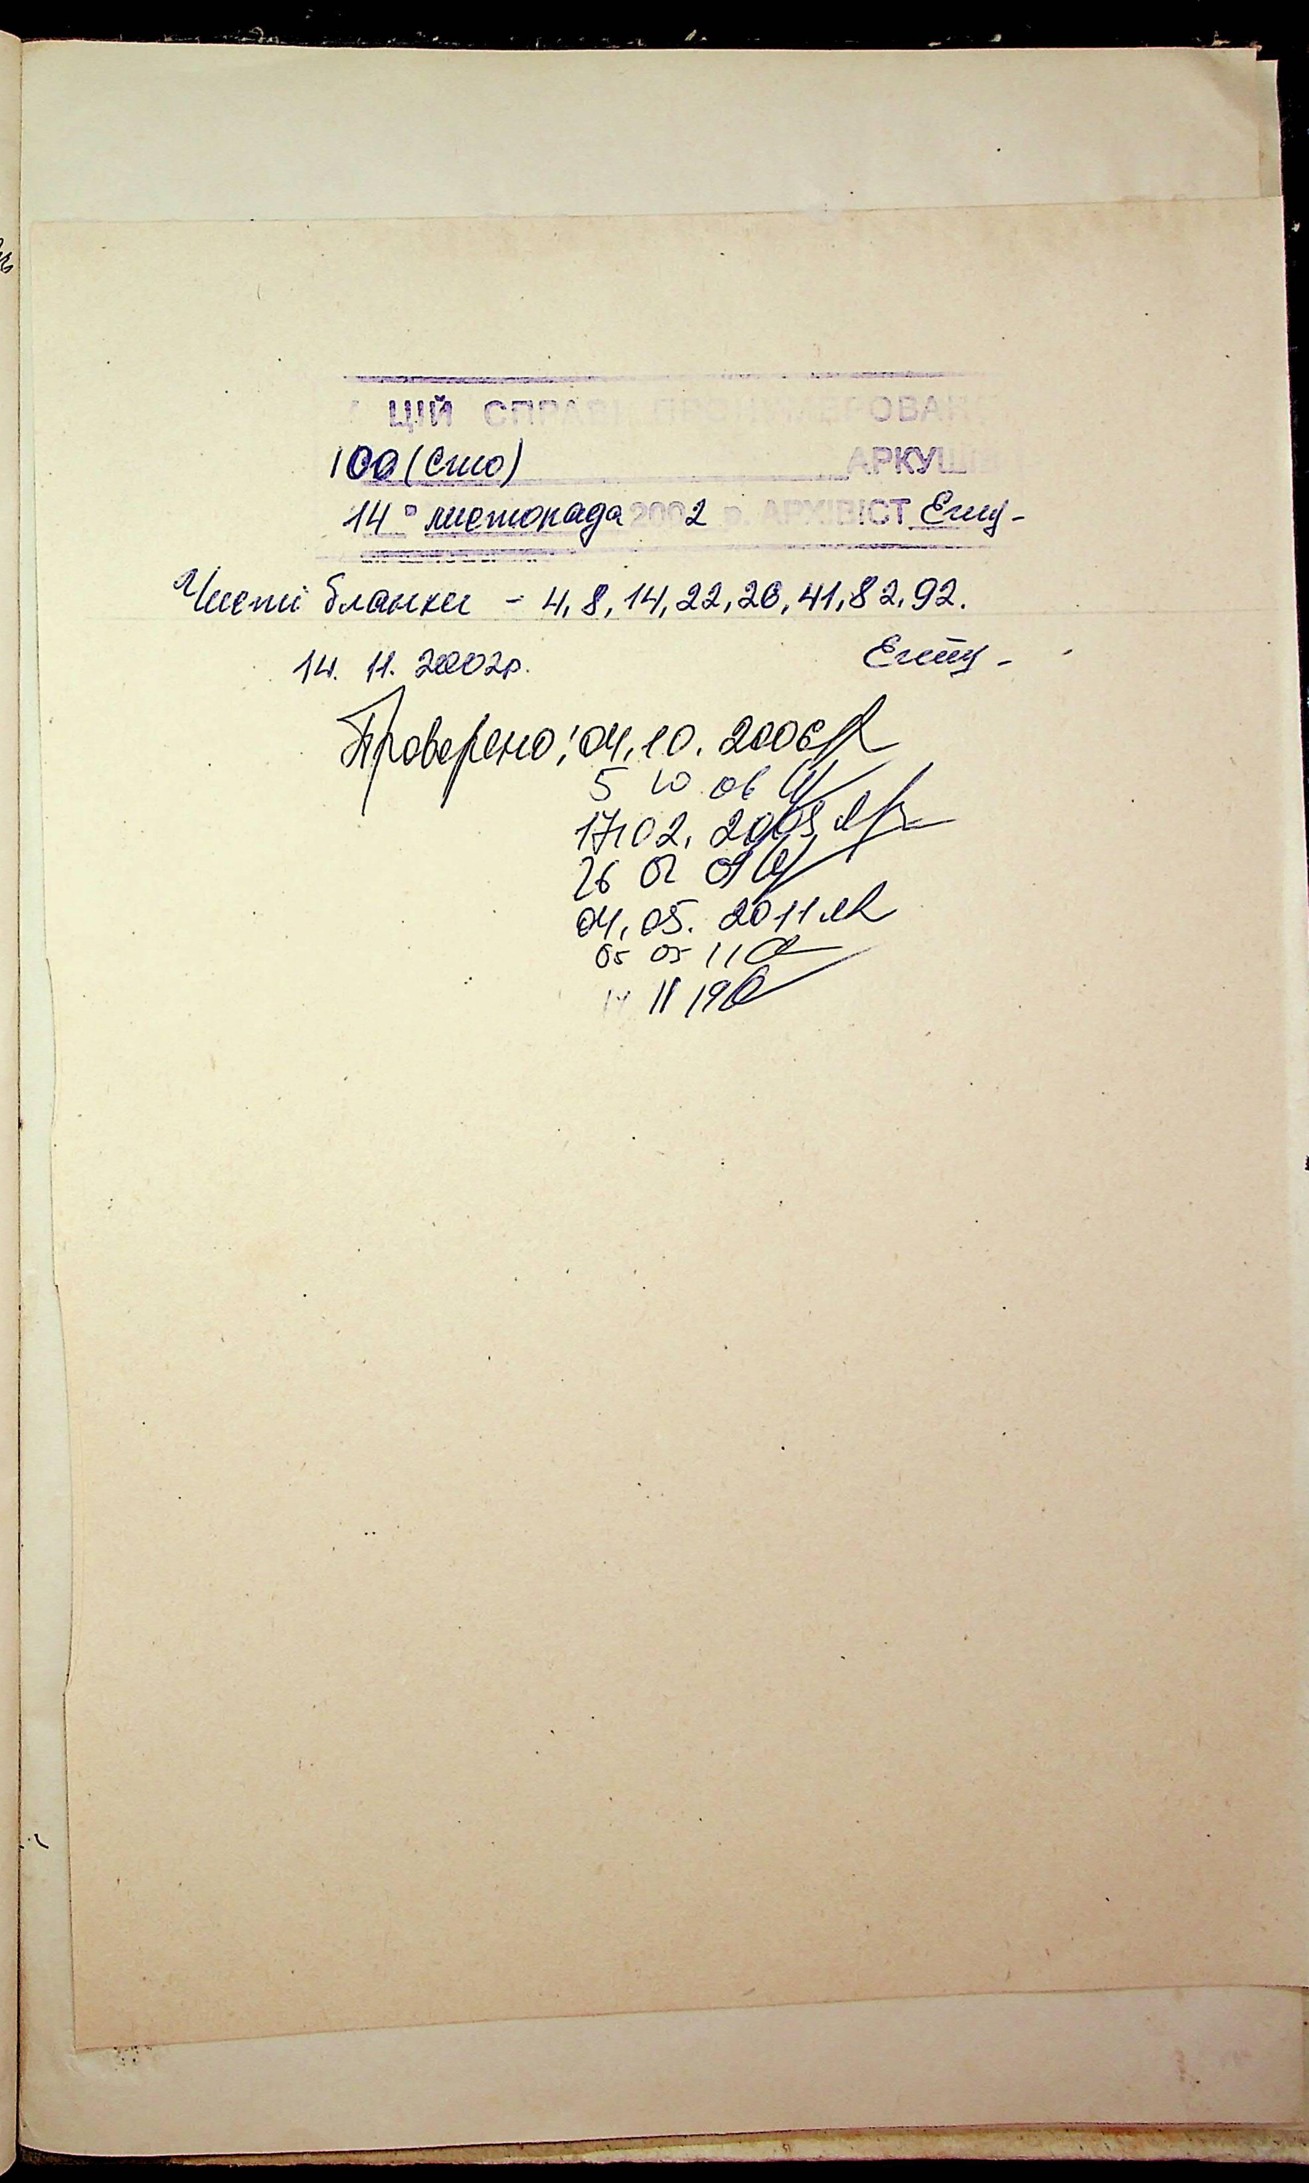 ЦІЙ СПРАВІ ПРОНУМЕРОВАН
100 (сто) АРКУШІВ
14 листопада 2002 р. АРХІВІСТ
Чисті бланки - 4, 8, 14, 22, 26, 41, 82, 92.
14. 11. 2002р.
Проверено: 04.10.2006
5 10 06
17.02.2009
26 02 09
04.05.2011
05 05 11
11 19